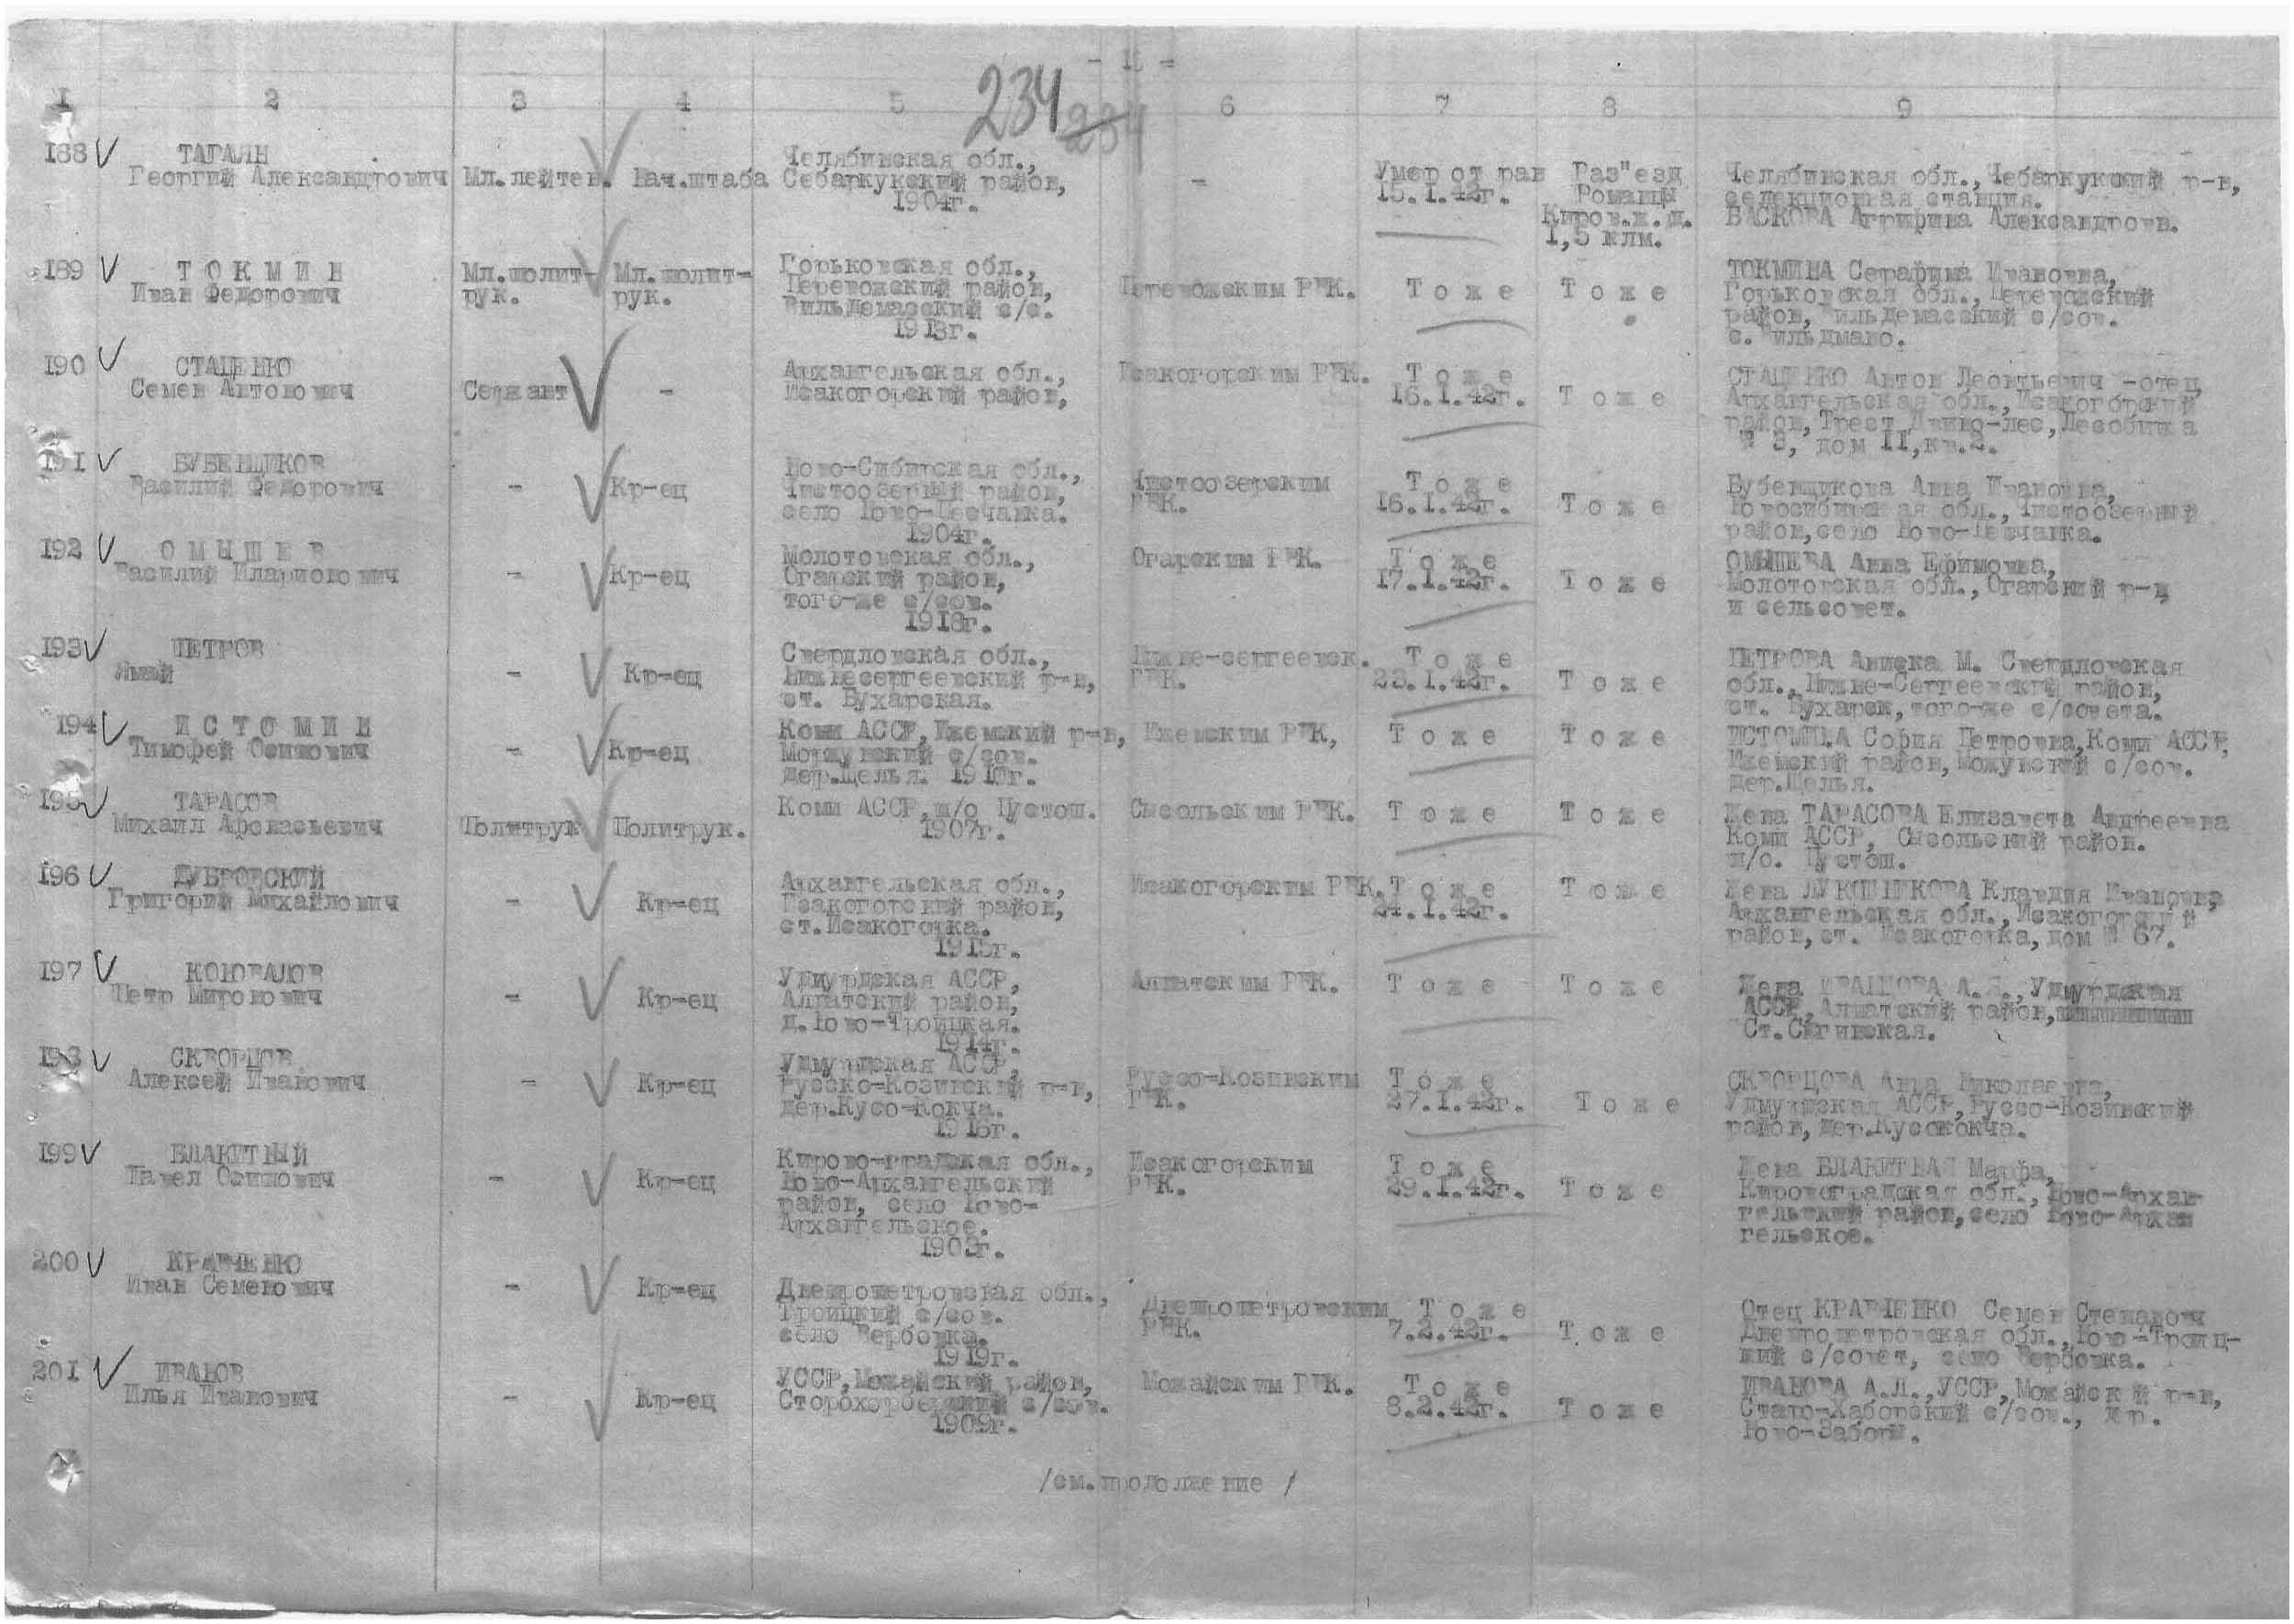 234 234
1 2 3 4 5 6 7 8 9
188 ТАГАЛН
Георгий Александрович Мл.лейтен. Нач.штаба
Челябинская обл.,
Себаркукский район,
1904г.
-
Умер от ран
15.1.42г.
Раз"езд
Романцы
Киров.ж.д.
1,5 клм.
Челябинская обл.,Чебаркукский р-н,
селекционная станция.
БАСКОВА Агрифина Александровн.
189 ТОКМИН
Иван Федорович
Мл.полит-
рук.
Мл.полит-
рук.
Горьковская обл.,
Перевозский район,
ВильДемасский с/с.
1913г.
Перевозским РВК.
Тоже
Тоже
ТОКМИНА Серафима Ивановна,
Горьковская обл., Перевозский
район, ВильДемасский с/сов.
с. Вильдмано.
190 СТАЦЕНКО
Семен Антонович
Сержант
-
Архангельская обл.,
Исакогорский район,
Исакогорским РВК.
Тоже
16.1.42г.
Тоже
СТАЦЕНКО Антон Леонтьевич -отец
Архангельская обл.,Исакогорский
район,Трест Двино-лес,Лесобиржа
№ 3, дом II,кв.2.
191 БУБЕНЩИКОВ
Василий Федорович
-
Кр-ец
Ново-Сибирская обл.,
Чистоозерный район,
село Ново-Песчанка.
1904г.
Чистоозерским
РВК.
Тоже
16.1.42г.
Тоже
Бубенщикова Анна Ивановна,
Новосибирская обл.,Чистоозерный
район,село Ново-Песчанка.
192 ОМЫШЕВ
Василий Иларионович
-
Кр-ец
Молотовская обл.,
Огарский район,
того-же с/сов.
1918г.
Огарским РВК.
Тоже
17.1.42г.
Тоже
ОМЫШЕВА Анна Ефимовна,
Молотовская обл.,Огарский р-н
и сельсовет.
193 ПЕТРОВ
Ямай
-
Кр-ец
Свердловская обл.,
Нижнесергеевский р-н,
ст. Бухарская.
Нижне-сергеевск.
РВК.
Тоже
23.1.42г.
Тоже
ПЕТРОВА Аниска М. Свердловская
обл.,Нижне-Сергеевский район,
ст. Бухарск,того-же с/совета.
194 ИСТОМИН
Тимофей Осипович
-
Кр-ец
Коми АССР,Ижемский р-н,
Можцувский с/сов.
дер.Щелья. 1910г.
Ижемским РВК,
Тоже
Тоже
ИСТОМИНА София Петровна,Коми АССР,
Ижемский район,Можувский с/сов.
дер.Щелья.
195 ТАРАСОВ
Михаил Афонасьевич
Политрук
Политрук.
Коми АССР,п/о Пустош.
1907г.
Сысольским РВК.
Тоже
Тоже
Жена ТАРАСОВА Елизавета Авдфеевна
Коми АССР, Сысольский район.
п/о. Пустош.
196 ДУБРОВСКИЙ
Григорий Михайлович
-
Кр-ец
Архангельская обл.,
Исакогорский район,
ст.Исакогорка.
1915г.
Исакогорским РВК.
Тоже
24.1.42г.
Тоже
Жена ЛУКОШНИКОВА Клавдия Ивановна,
Архангельская обл.,Исакогорский
район,ст. Исакогорка,дом № 67.
197 КОНОВАЛОВ
Петр Миронович
-
Кр-ец
Удмурдская АССР,
Алнатский район,
д.Ново-Троицкая.
1914г.
Алнатским РВК.
Тоже
Тоже
Жена ИВАНЦОВА А.Я.,Удмурдская
АССР,Алнатский район,
Ст.Сягинская.
198 СКВОРЦОВ
Алексей Иванович
-
Кр-ец
Удмурдская АССР,
Русско-Козинский р-н,
дер.Кусо-Кокча.
1916г.
Руссо-Козинским
РВК.
Тоже
27.1.42г.
Тоже
СКВОРЦОВА Анна Николаевна,
Удмурдская АССР,Руссо-Козинский
район,дер.Кусококча.
199 БЛАКИТНЫЙ
Павел Осипович
-
Кр-ец
Кирово-градская обл.,
Ново-Архангельский
район, село Ново-
Архангельское.
1903г.
Исакогорским
РВК.
Тоже
29.1.42г.
Тоже
Жена БЛАКИТНАЯ Марфа,
Кировоградская обл.,Ново-Архан
гельский район,село Ново-Архан
гельское.
200 КРАВЧЕНКО
Иван Семенович
-
Кр-ец
Днепропетровская обл.,
Троицкий с/сов.
село Вербовка.
1919г.
Днепропетровским
РВК.
Тоже
7.2.42г.
Тоже
Отец КРАВЧЕНКО Семен Степанович
Днепропетровская обл.,Ново-Троиц-
кий с/совет, село Вербовка.
201 ИВАНОВ
Илья Иванович
-
Кр-ец
УССР,Можайский район,
Сторохоровский с/сов.
1909г.
Можайским РВК.
Тоже
8.2.42г.
Тоже
ИВАНОВА А.Л.,УССР,Можайский р-н,
Старо-Хаборский с/сов., др.
Ново-Заборы.
/см.продолжение /